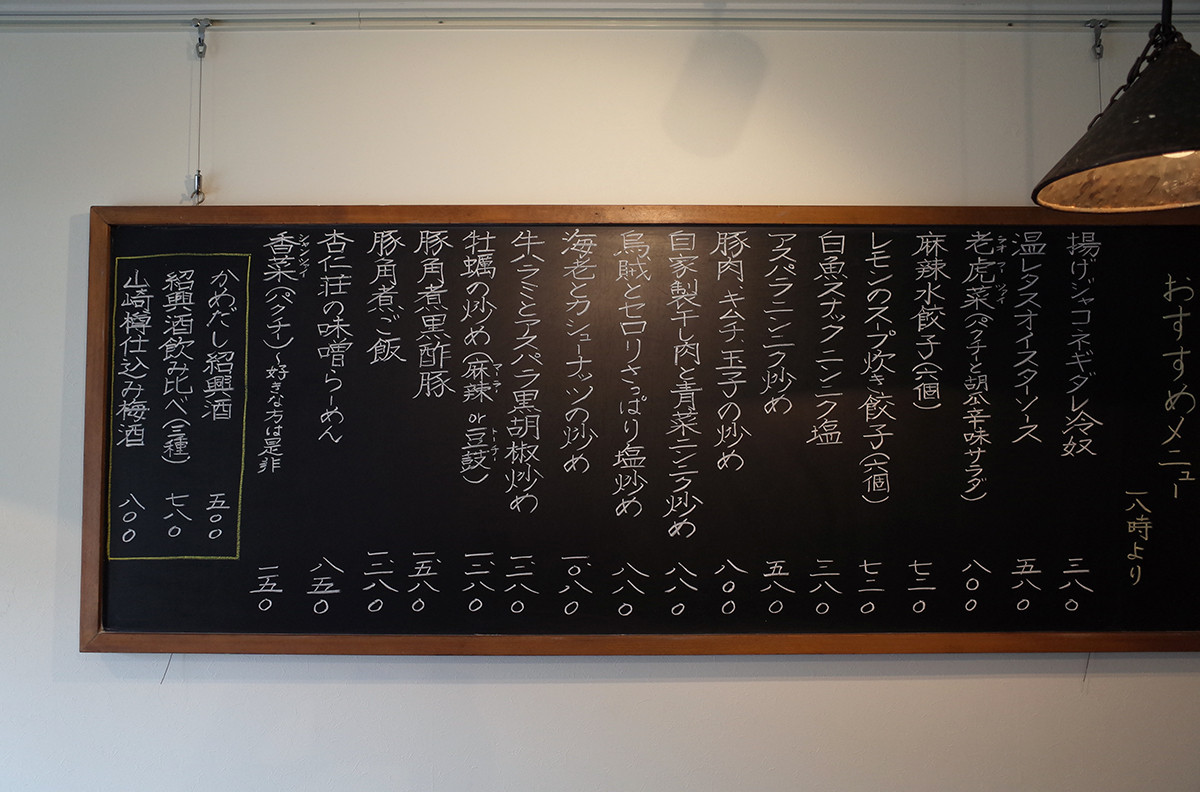 おすすめメニュー
一八時より
揚げジャコネギダレ冷奴 三八〇
温レタスオイスターソース 五八〇
老虎菜(パクチーと胡瓜辛味サラダ) 八〇〇
ラオフーツァイ
麻辣水餃子(六個) 七二〇
レモンのスープ炊き餃子(六個) 七二〇
白魚スナックニンニク塩 三八〇
アスパラニンニク炒め 五八〇
豚肉、キムチ、玉子の炒め 八〇〇
自家製干し肉と青菜ニンニク炒め 八八〇
烏賊とセロリさっぱり塩炒め 八八〇
海老とカシューナッツの炒め 一、〇八〇
牛ハラミとアスパラ黒胡椒炒め 一、二八〇
牡蠣の炒め(麻辣 or 豆鼓)
マーラー
トーチー
豚角煮黒酢豚 一、五八〇
豚角煮ご飯
杏仁荘の味噌らーめん 八五〇
香菜(パクチー)〜好きな方は是非 一五〇
シャンツァイ
かめだし紹興酒 五〇〇
紹興酒飲み比べ(三種) 七八〇
山崎樽仕込み梅酒 八〇〇